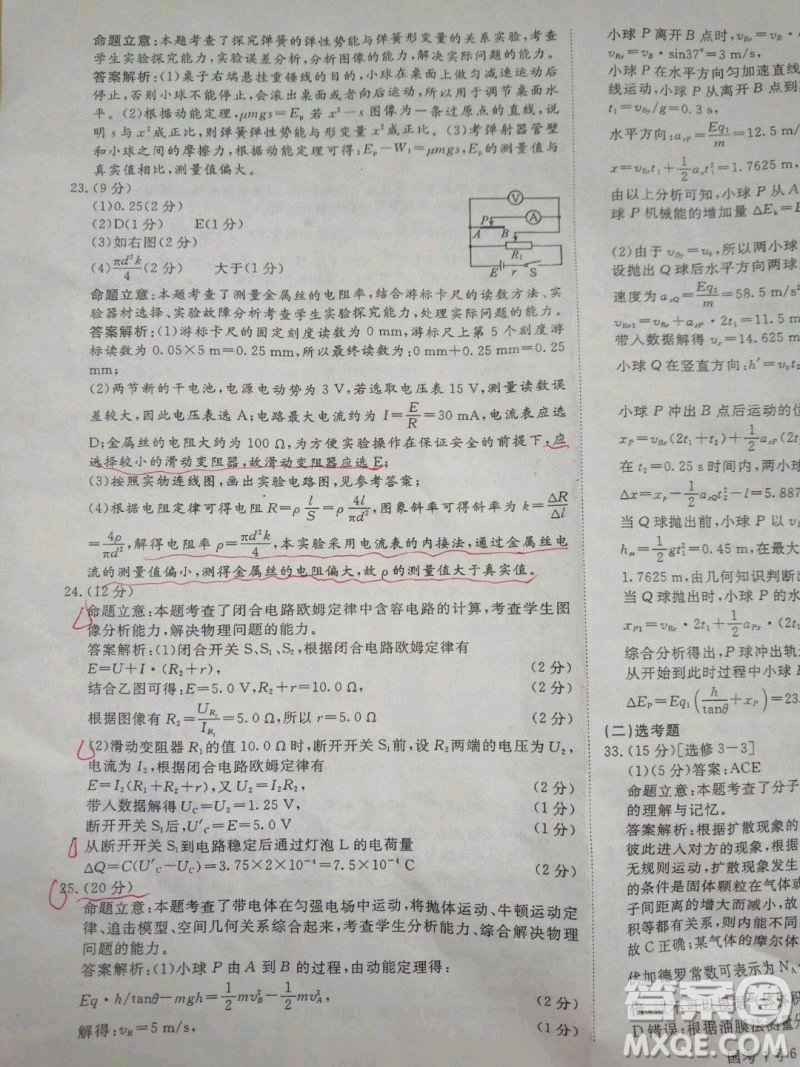 命题立意：本题考查了探究弹簧的弹性势能与弹簧形变量的关系实验，考查
学生实验探究能力，实验误差分析，分析图像的能力，解决实际问题的能力。
答案解析：(1)桌子右端悬挂重锤线的目的，小球在桌面上做匀减速运动后
停止，否则小球不能停止，会滚出桌面或者向后运动，所以用于调节桌面水
平。(2)根据动能定理，μmgs=Eₚ 若 x²－s 图像为一条过原点的直线，说
明 s 与 x² 成正比，则弹簧弹性势能与形变量 x² 成正比。(3)考弹射器管壁
和小球之间的摩擦力，根据动能定理可得：Eₚ－W₁=μmgs，测量值与
真实值相比，测量值偏大。
23.(9 分)
(1)0.25(2 分)
(2)D(1 分)　E(1 分)
(3)如右图(2 分)
(4)πd²k/4(2 分)　大于(1 分)
V
A
P
A B
R₁
E r S
命题立意：本题考查了测量金属丝的电阻率，结合游标卡尺的读数方法、实
验器材选择、实验故障分析考查学生实验探究能力，处理实际问题的能力。
答案解析：(1)游标卡尺的固定刻度读数为 0 mm，游标尺上第 5 个刻度游
标读数为 0.05×5 m=0.25 mm，所以最终读数为：0 mm+0.25 mm=0.25
mm；
(2)两节新的干电池，电源电动势为 3 V，若选取电压表 15 V，测量读数误
差较大，因此电压表选 A；电路最大电流约为 I=E/R=30 mA，电流表应选
D；金属丝的电阻约为 100 Ω，为方便实验操作在保证安全的前提下，应
选择较小的滑动变阻器，故滑动变阻器应选 E；
(3)按照实物连线图，画出实验电路图，见参考答案；
(4)根据电阻定律可得电阻 R=ρ l/S=ρ 4l/πd²，图象斜率可得斜率为 k=ΔR/Δl
=4ρ/πd²，解得电阻率 ρ=πd²k/4，本实验采用电流表的内接法，通过金属丝电
流的测量值偏小，测得金属丝的电阻偏大，故 ρ 的测量值大于真实值。
24.(12 分)
命题立意：本题考查了闭合电路欧姆定律中含容电路的计算，考查学生图
像分析能力，解决物理问题的能力。
答案解析：(1)闭合开关 S、S₁、S₂，根据闭合电路欧姆定律有
E=U+I·(R₂+r)，　(2 分)
结合乙图可得：E=5.0 V，R₂+r=10.0 Ω，　(2 分)
根据图像有 R₂=U_R₂/I_R₂=5.0 Ω，所以 r=5.0 Ω　(2 分)
(2)滑动变阻器 R₁ 的值 10.0 Ω时，断开开关 S₁ 前，设 R₂ 两端的电压为 U₂，
电流为 I₂，根据闭合电路欧姆定律有
E=I₂(R₁+R₂+r)，又 U₂=I₂R₂，　(2 分)
带入数据解得 U_C=U₂=1.25 V，　(1 分)
断开开关 S₁后，U′_C=E=5.0 V　(1 分)
从断开开关 S₁到电路稳定后通过灯泡 L 的电荷量
ΔQ=C(U′_C－U_C)=3.75×2×10⁻⁴=7.5×10⁻⁴ C　(2 分)
25.(20 分)
命题立意：本题考查了带电体在匀强电场中运动，将抛体运动、牛顿运动定
律、追击模型、空间几何关系综合起来，考查学生分析能力、综合解决物理
问题的能力。
答案解析：(1)小球 P 由 A 到 B 的过程，由动能定理得：
Eq·h/tanθ－mgh=1/2 mv_B²－1/2 mv_A²，　(2 分)
解得：v_B=5 m/s，　(1 分)
小球 P 离开 B 点时，v_Bx
v_By=v_B·sin37°=3 m/s，
小球 P 在水平方向匀加速直线
线运动，小球 P 从离开 B 点到
t₁=v_By/g=0.3 s，
水平方向：a_xP=Eq₁/m=12.5 m/
x=v_Bx t₁+1/2 a_x t₁²=1.7625 m，
由以上分析可知，小球 P 从 A
球 P 机械能的增加量 ΔE_k=
(2)由于 v_By=v₀，所以两小球
设抛出 Q 球后小球 P 在水平方
速度为 a_xQ=Eq₁/m=58.5 m/s
v_Bx1=v_Bx·2t₁=11.5 m
带入数据解得 v_x=14.625 m
小球 Q 在竖直方向：h′=v₀t₂
小球 P 冲出 B 点后运动的位
x_P=v_Bx(2t₁+t₂)+1/2 a_xP(2
在 t₂=0.25 s 时间内，两小
Δx=x_P－1/2 a_xQ t₂²=5.887
当 Q 球抛出前，小球 P 在
h_m=1/2 gt₁²=0.45 m，在最大
1.7625 m，由几何知识判断出
当 Q 球抛出时，小球 P 的水
x_P1=v_Bx·2t₁+1/2 a_Px·(2
综合分析得出，P 球冲出轨
从开始到此时过程中小球
ΔE_P=Eq₁(h/tanθ+x_P)=23.
(二)选考题
33.(15 分)[选修 3－3]
(1)(5 分)答案：ACE
命题立意：本题考查了分子
的理解与记忆。
答案解析：根据扩散现象的
彼此进入对方的现象，根据
无规则运动，扩散现象的
的条件是固体颗粒在气体或
子间距离的增大而减小，故
等都有关系，则内能大小
故 C 正确；某气体的摩尔体
伏加德罗常数可表示为 N_A
D 错误；根据油膜法测量分
答案圈
MXQE.COM